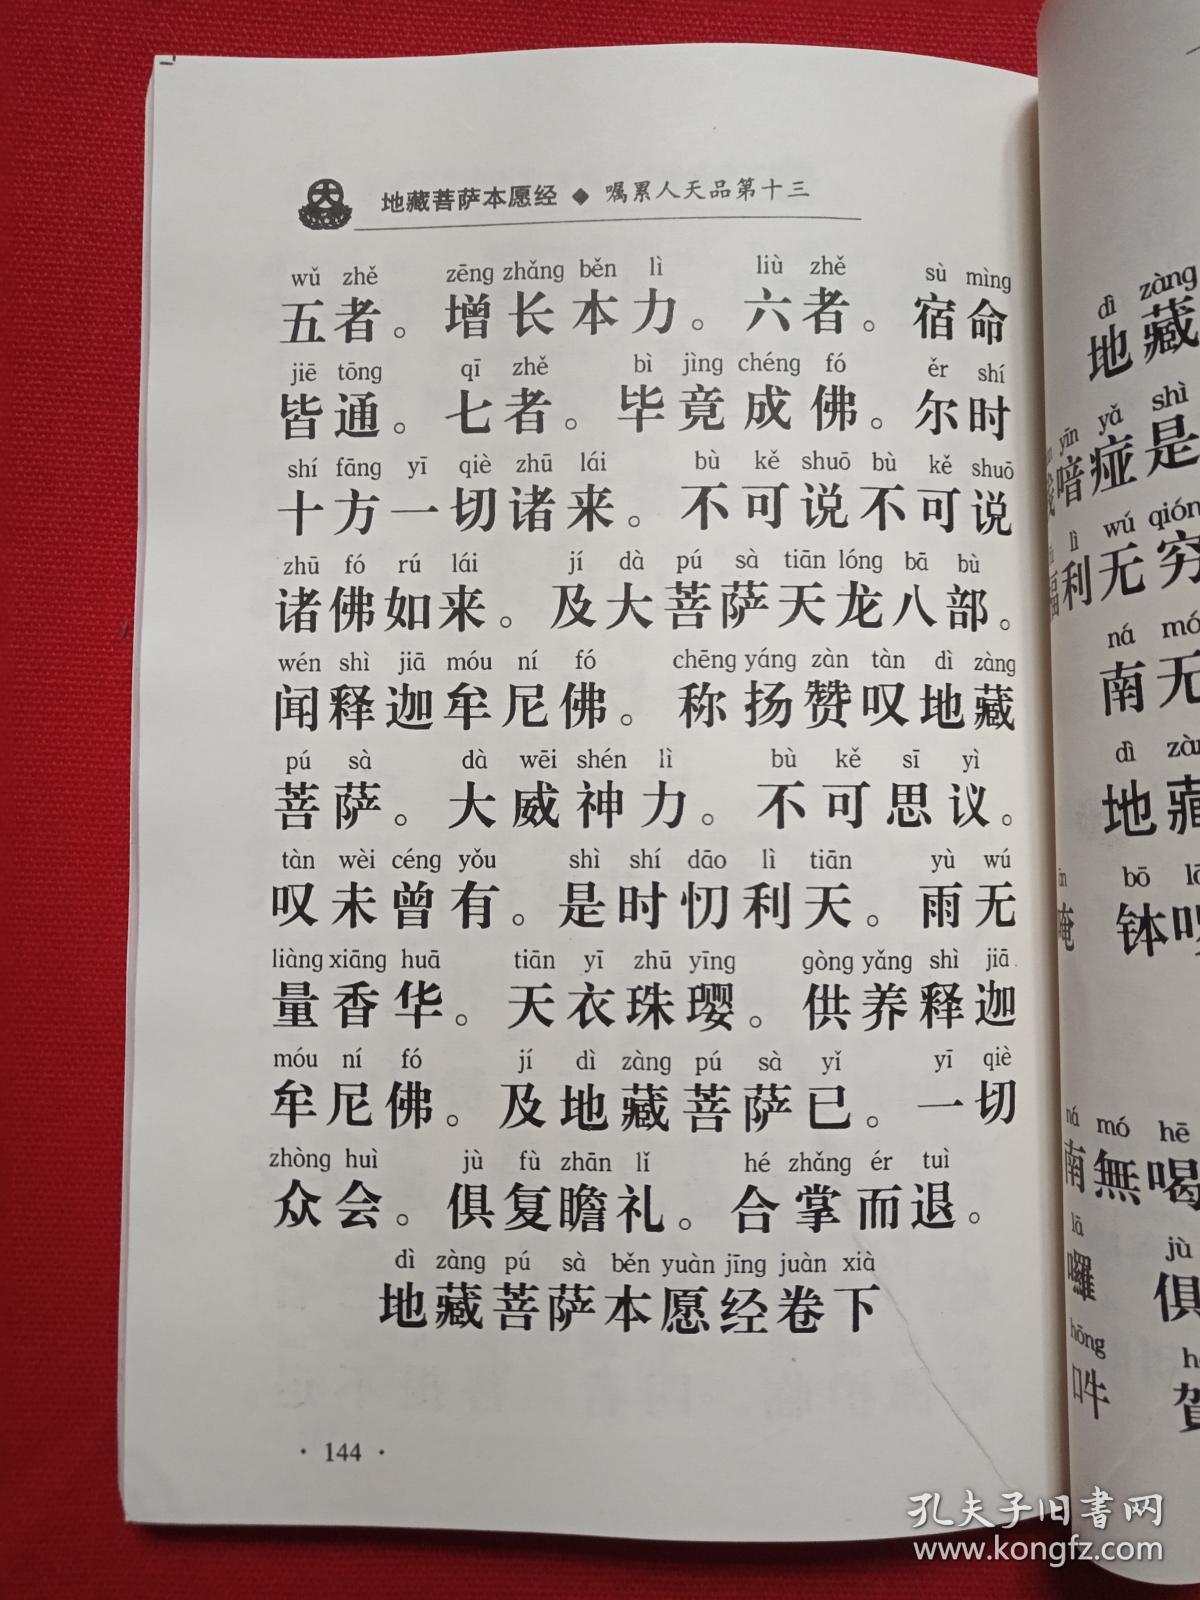 地藏菩萨本愿经 ◆ 嘱累人天品第十三
wǔ zhě zēng zhǎng běn lì liù zhě sù mìng
五者。增长本力。六者。宿命
jiē tōng qī zhě bì jìng chéng fó ěr shí
皆通。七者。毕竟成佛。尔时
shí fāng yī qiè zhū lái bù kě shuō bù kě shuō
十方一切诸来。不可说不可说
zhū fó rú lái jí dà pú sà tiān lóng bā bù
诸佛如来。及大菩萨天龙八部。
wén shì jiā móu ní fó chēng yáng zàn tàn dì zàng
闻释迦牟尼佛。称扬赞叹地藏
pú sà dà wēi shén lì bù kě sī yì
菩萨。大威神力。不可思议。
tàn wèi céng yǒu shì shí dāo lì tiān yù wú
叹未曾有。是时忉利天。雨无
liàng xiāng huā tiān yī zhū yīng gòng yǎng shì jiā
量香华。天衣珠璎。供养释迦
móu ní fó jí dì zàng pú sà yǐ yī qiè
牟尼佛。及地藏菩萨已。一切
zhòng huì jù fù zhān lǐ hé zhǎng ér tuì
众会。俱复瞻礼。合掌而退。
dì zàng pú sà běn yuàn jīng juàn xià
地藏菩萨本愿经卷下
· 144 ·
dì zàng
地藏
yīn yǎ shì
喑痖是
lì wú qióng
利无穷
ná mó
南无
dì
地藏
bō
钵
ná mó hē
南無喝
lā jù
囉 俱
hōng
吽
孔夫子旧书网
www.kongfz.com